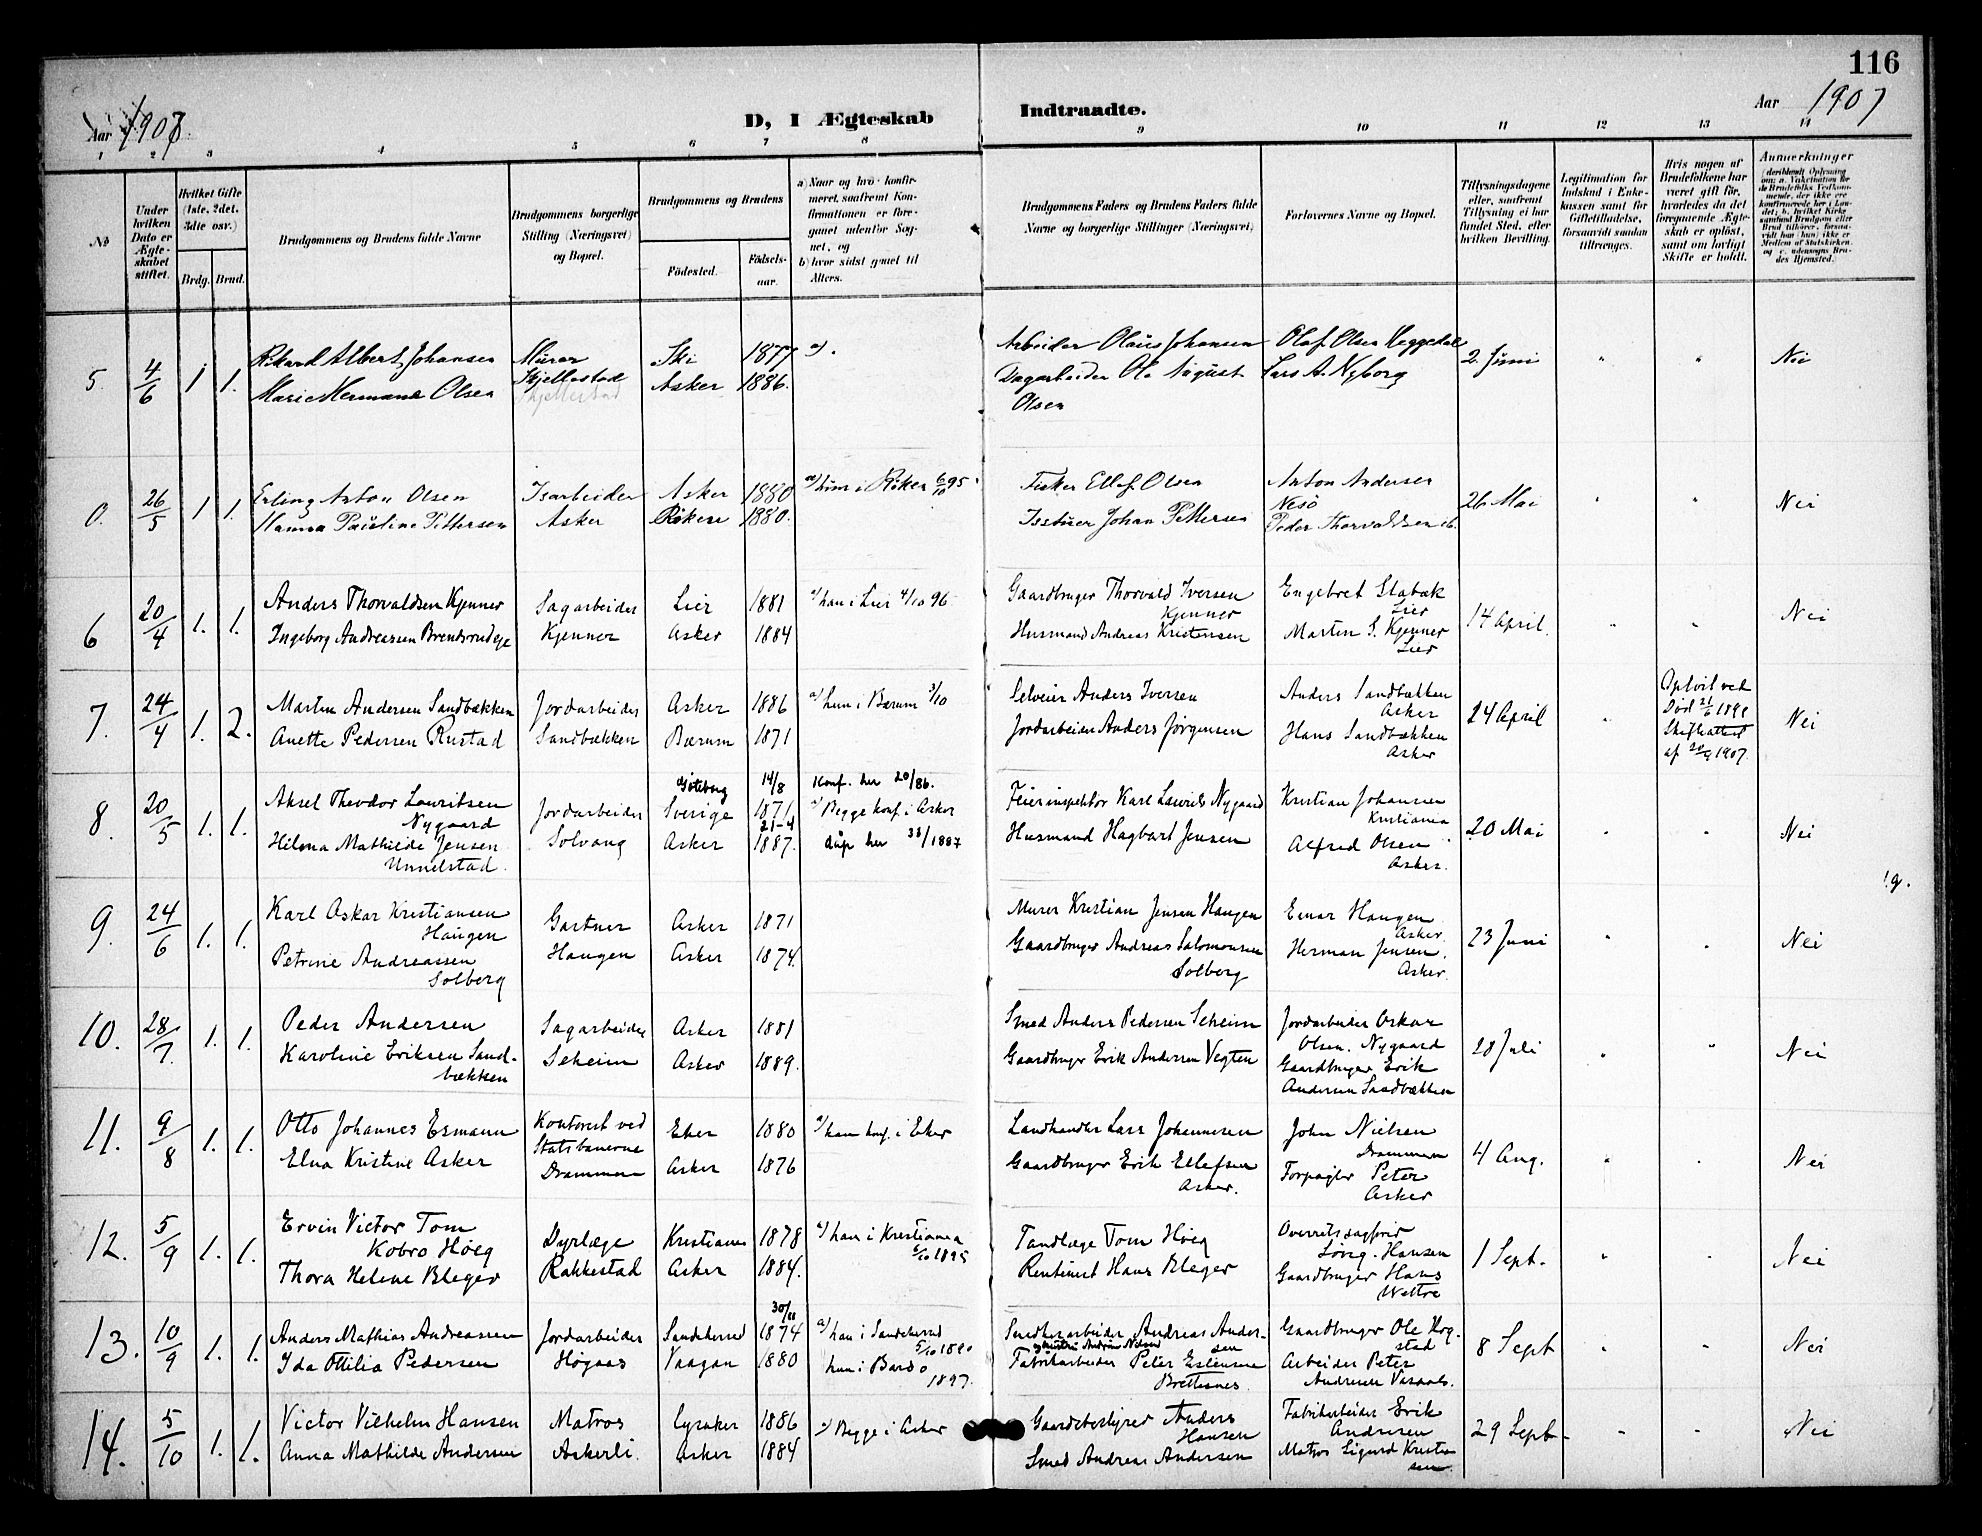 116
Aar 1907
D, I Ægteskab Indtraadte.
Aar 1907
1 2 3 4 5 6 7 8 9 10 11 12 13 14
No
Under hvilken Dato er Ægte-skabet stiftet.
Hvilket Gifte (1ste, 2det, 3die osv.)
Brdg. Brud.
Brudgommens og Brudens fulde Navne
Brudgommens borgerlige Stilling (Næringsvei) og Bopæl.
Brudgommens og Brudens
Födested.
Födsels-aar.
a) Naar og hvo konfir-meret, saafremt Kon-firmationen er fore-gaaet udenfor Sog-net, og
b) hvor sidst gaaet til Alters.
Brudgommens Faders og Brudens Faders fulde Navne og borgerlige Stillinger (Næringsvei)
Forlovernes Navne og Bopæl.
Tillysningsdagene eller, saafremt Tillysning ei har fundet Sted, efter hvilken Bevilling.
Legitimation for Indskud i Enke-kassen samt for Giftetilladelse, forsaavidt saadan tiltrænges.
Hvis nogen af Brudefolkene har været gift för, hvorledes da det foregaaende Ægte-skab er oplöst, samt om lovligt Skifte er holdt.
Anmærkninger (deriblandt Oplysning om: a. Vakcination for de Brudefolks Vedkom-mende, der ikke ere konfirmerede her i Lan-det; b. hvilket Kirke-samfund Brudgom eller Brud tilhörer, forsaa-vidt han (hun) ikke er Medlem af Statskirken, og c. udensogns Bru-des Hjemsted.
5. 4/6 1 1. Rikard Albert Johansen Murer Ski 1877 a). Arbeider Olaus Johansen Olaf Olsen Heggedal 2. Juni " " Nei
Marie Hermana Olsen Skjellestad Asker 1886. Dagarbeider Ole August Lars A. Nyborg
Skjellestad Olsen
0. 26/5 1 1. Erling Anton Olsen Isarbeider Asker 1880 a) hun i Röken 6/10 95. Fisker Ellef Olsen Anton Andersen 26 Mai " " Nei
Hanna Pauline Pettersen Asker Röken 1880. Johan Pettersen Nesö
Peder Thorvaldsen ib.
6 20/4 1. 1. Anders Thorvaldsen Kjenner Sagarbeider Lier 1881 a) han i Lier 4/10 96 Gaardbruger Thorvald Iversen Kjenner Engebret Stabæk Lier 14 April. " " Nei
Ingeborg Andreassen Brendsrudeje Kjenner Asker 1884 Husmand Andreas Kristensen Martin S. Kjenner Lier
7. 24/4 1. 2. Martin Andersen Sandbækken Jordarbeider Asker 1886 a) hun i Bærum 3/10 Selveier Anders Iversen Anders Sandbækken Asker 24 April " Oplöst ved Död 21/6 1899 Skifteattest af 20/4 1907. Nei
Anette Pedersen Rustad Sandbækken Bærum 1871 Jordarbeider Anders Jörgensen Hans Sandbækken Asker
8. 20/5 1. 1. Aksel Theodor Lauritsen Nygaard Jordarbeider Göteborg Sverige 14/8 1871 Konf. her 20/86. a) Begge konf. i Asker Feierinspektör Karl Laurits Nygaard Kristian Johansen Kristiania 20 Mai " " Nei
Helena Mathilde Jensen Unnelstad. Solvang Asker 21-4 1887. döpt her /1887 Husmand Hagbart Jensen Alfred Olsen Asker.
9. 24/6 1. 1. Karl Askar Kristiansen Haugen Gartner Asker 1871 Murer Kristian Jensen Haugen Einar Haugen Asker 23 Juni " " Nei
Petrine Andreassen Solberg Haugen Asker 1874. Gaardbruger Andreas Salomonsen Solberg Herman Jensen. Asker.
10. 28/7. 1. 1. Peder Andersen Sagarbeider Asker 1881 Smed Anders Pedersen Seheim Jordarbeider Oskar Olsen. Nygaard 28 Juli " " Nei
Karoline Eriksen Sand-bækken Seheim Asker 1889. Gaardbruger Erik Andersen Vegten Gaardbruger Erik Andersen Sandbækken
11. 9/8 1. 1. Otto Johannes Esmann Kontorist ved Statsbanerne Eker 1880 a) han konf. i Eker Landhandler Lars Johannesen John Nielsen Drammen 4 Aug. " " Nei
Elna Kristine Asker Drammen Asker 1876 Gaardbruger Erik Ellefsen Asker. Forpagter Peter Asker
12. 5/9 1. 1. Ervin Victor Tom Kobro Höeg Dyrlæge Kristiania 1878 a) han i Kristiania 5/10 1895 Tandlæge Tom Höeg Overretssagförer Hansen 1 Sept. " " Nei
Thora Helene Bleger Rakkestad Asker 1884. Rentenist Hans Bleger Gaardbruger Hans Wettre
13. 10/9 1. 1. Anders Mathias Andreassen Jordarbeider Sandeherred 30/11 1874 a) han i Sandeherred 5/10 1890 Andreas Ander-sen Gaardbruger Ole Hog-stad 8 Sept " " Nei
Ida Otilia Pedersen Högaas Vaagan 1880 hun i Bardo 1897. Fabrikarbeider Peter Estensen Brettesnes. Arbeider Peter Andersen
14. 5/10 1. 1. Victor Vilhelm Hansen Matros Lysaker 1886 a) Begge i Asker Gaardsbestyrer Anders Hansen Fabrikarbeider Erik Andersen 29 Sept. " " Nei
Anna Mathilde Andersen Askerli. Asker 1884 Smed Andreas Andersen Matros Sigurd Kristian-sen.